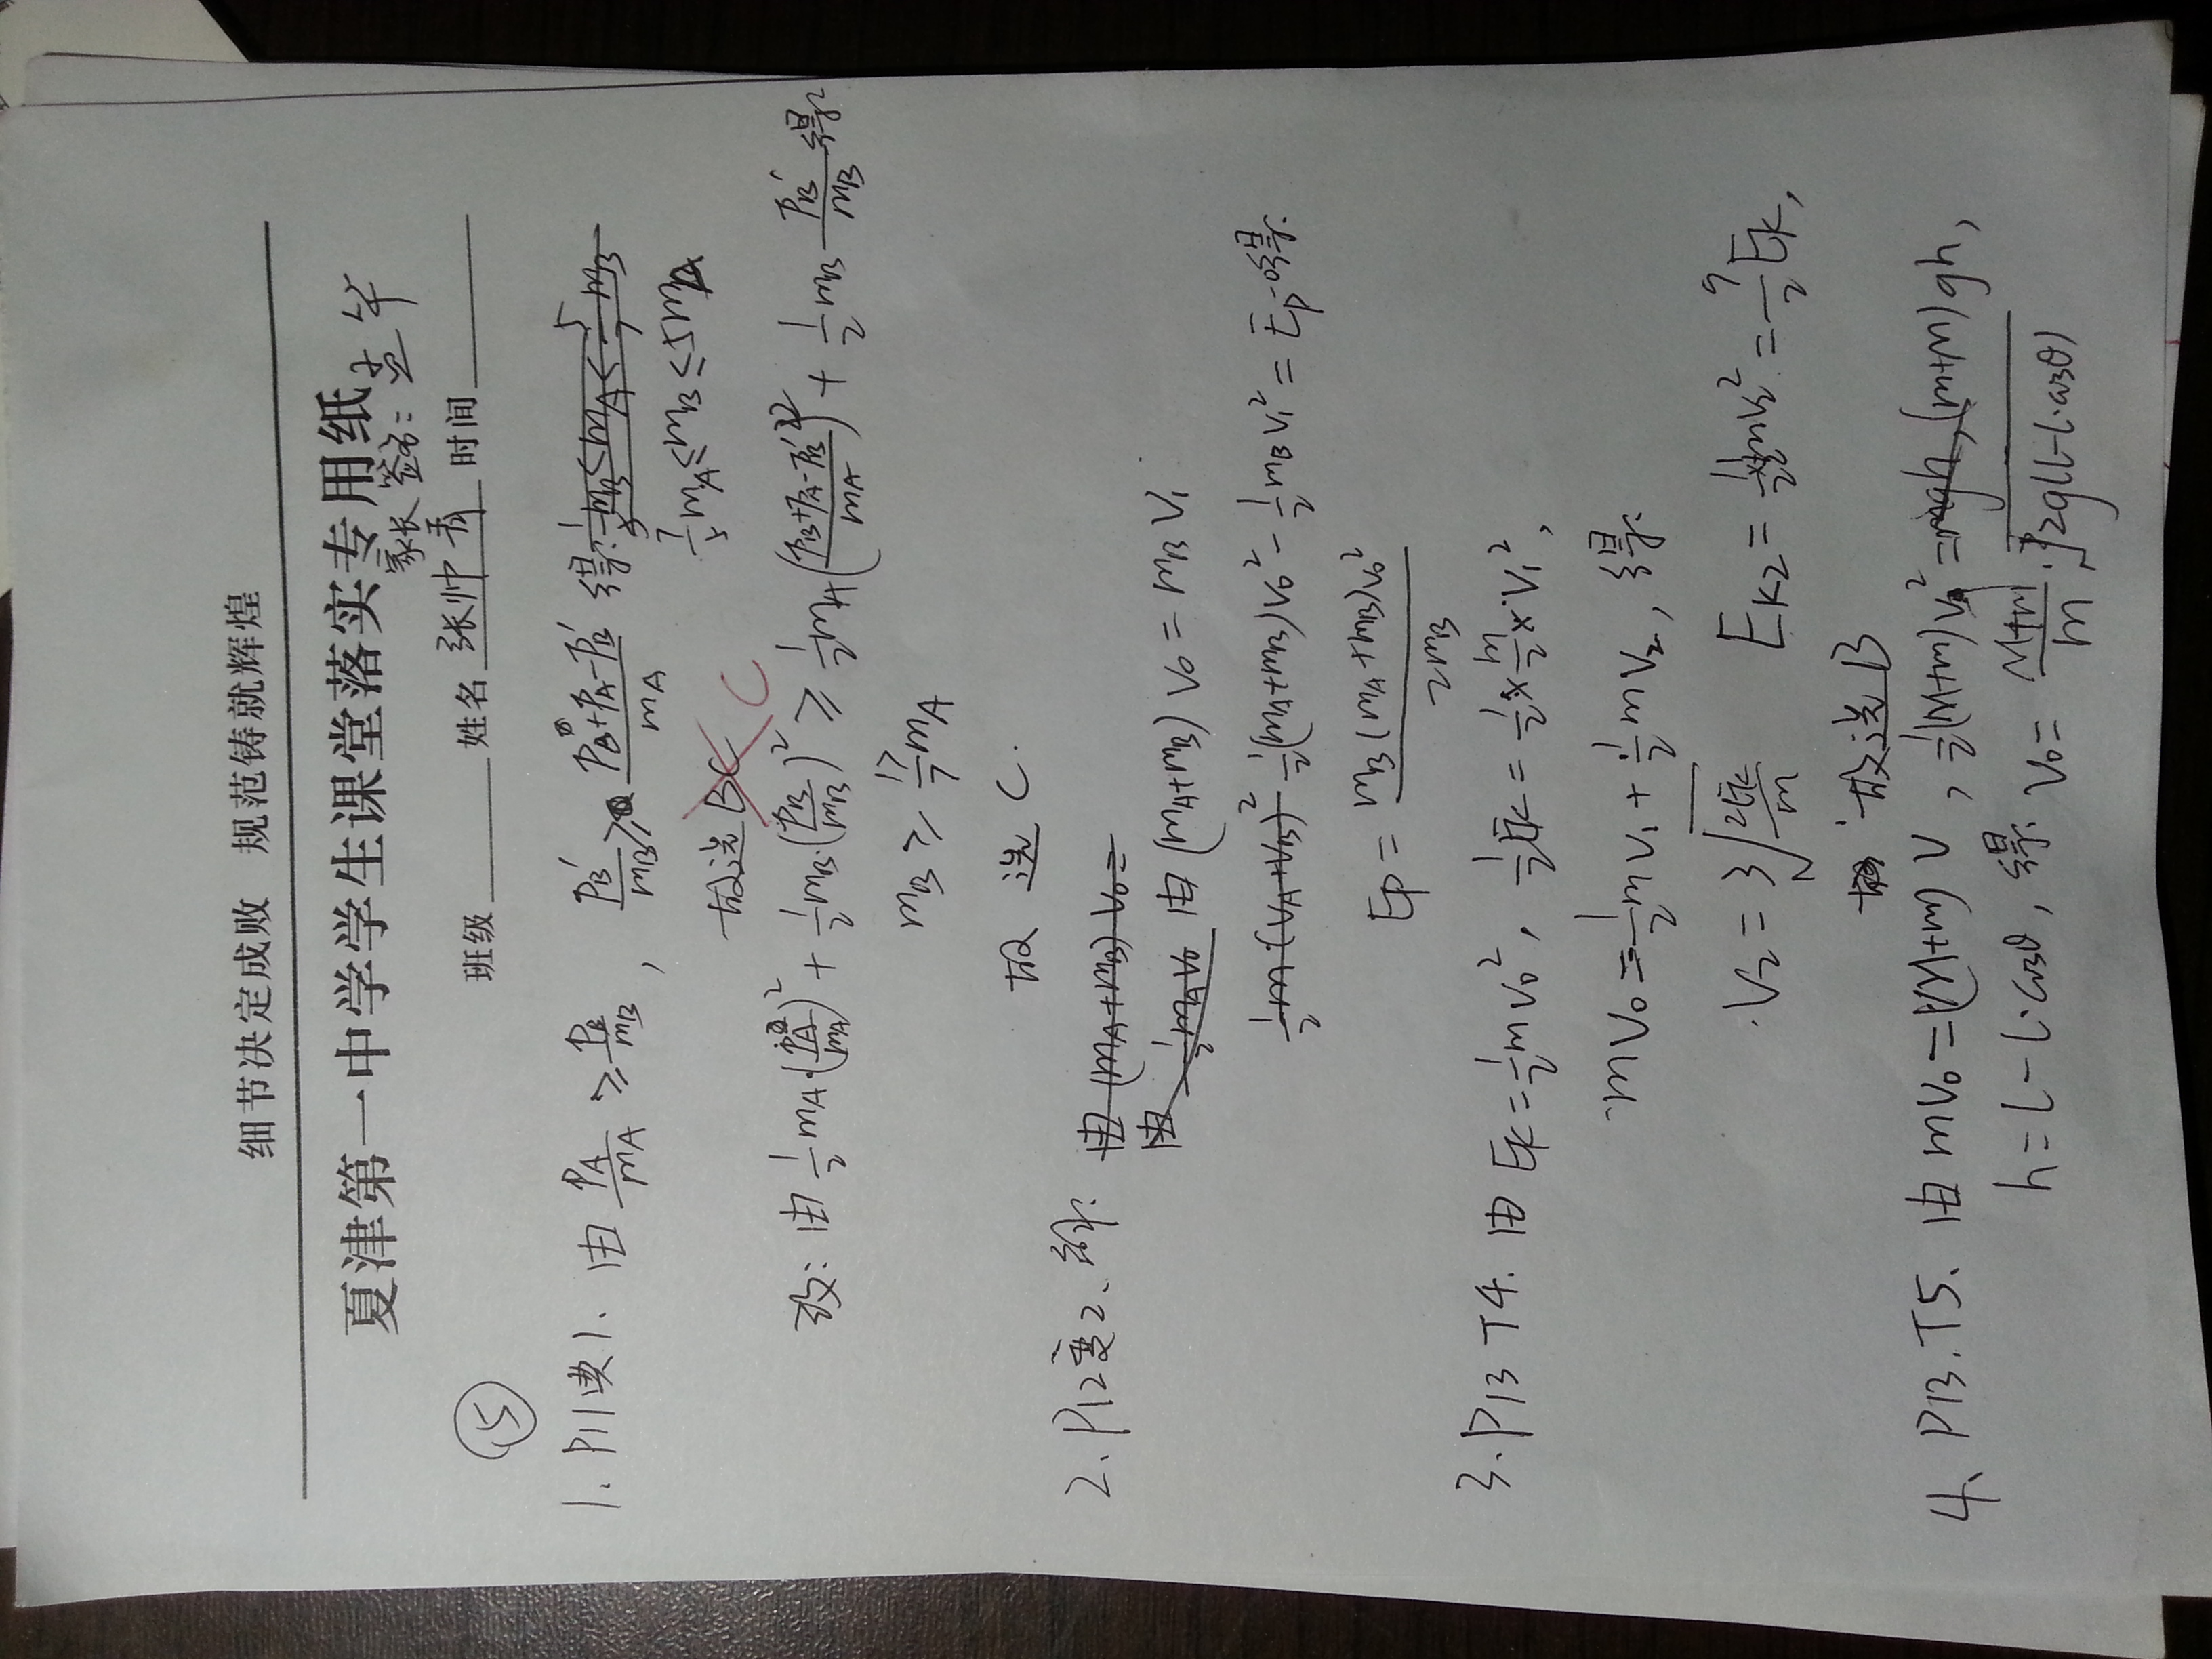 细节决定成败 规范铸就辉煌
夏津第一中学学生课堂落实专用纸
家长签名：孟午
班级 姓名 张帅青 时间
⑤
1. P11典1. 由 pA/mA ≥ pB/mB , pB′/mB ≥ (pB+pA-pB′)/mA 得:
7/5 mA ≤ mB ≤ 5mA
故选 BC C
改: 由 1/2 mA·(pA/mA)² + 1/2 mB·(pB/mB)² ≥ 1/2 mA((pB+pA-pB′)/mA)² + 1/2 mB pB′/mB 得:
mB ≥ 17/7 mA
故 选 C.
2. P12变2. 解: 由 (mA+mB) V0=
由 1/2 mA V0 由 (mA+mB) V0 = mB V1
1/2 m·(VA+VB)² 1/2 (mA+mB)V0² - 1/2 mB V1² = Ep 得:
Ep = mB(mA+mB)V0² / 2mB
3. P13 T4. 由 Ek = 1/2 mV0², 1/2 Ek = 1/2 × m/2 × V1²,
mV0 = 1/2 mV1 + 1/2 mV2, 得:
V2 = 3√(2Ek/m) Ek2 = 1/2 × 1/2 mV2² = 9/2 Ek,
故选 B
4. P13. T5. 由 mV0 = (M+m) V , 1/2 (M+m)V² = mgh, (m+M)gh,
h = l - l·cosθ, 得: V0 = (M+m)/m · √(2g(l-l·cosθ))